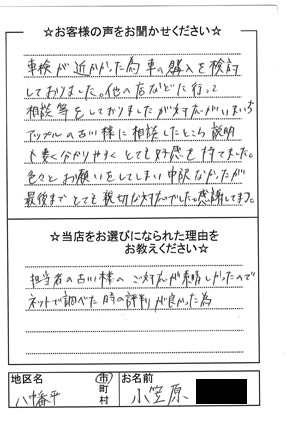 ☆お客様の声をお聞かせください☆
車検が近かった為車の購入を検討
しておりました。他の店などに行って
相談等をしておりましたが対応がいまいち
アップルの古川様に相談したところ説明
も凄く分かりやすくとても好感を持てました。
色々とお願いをしてしまい申訳なかったが
最後までとても親切な対応でした。感謝してます。
☆当店をお選びになられた理由を
お教えください☆
担当者の古川様のご対応が素晴しかったので
ネットで調べた時の評判が良かった為
地区名
八幡平
市
町
村
お名前
小笠原